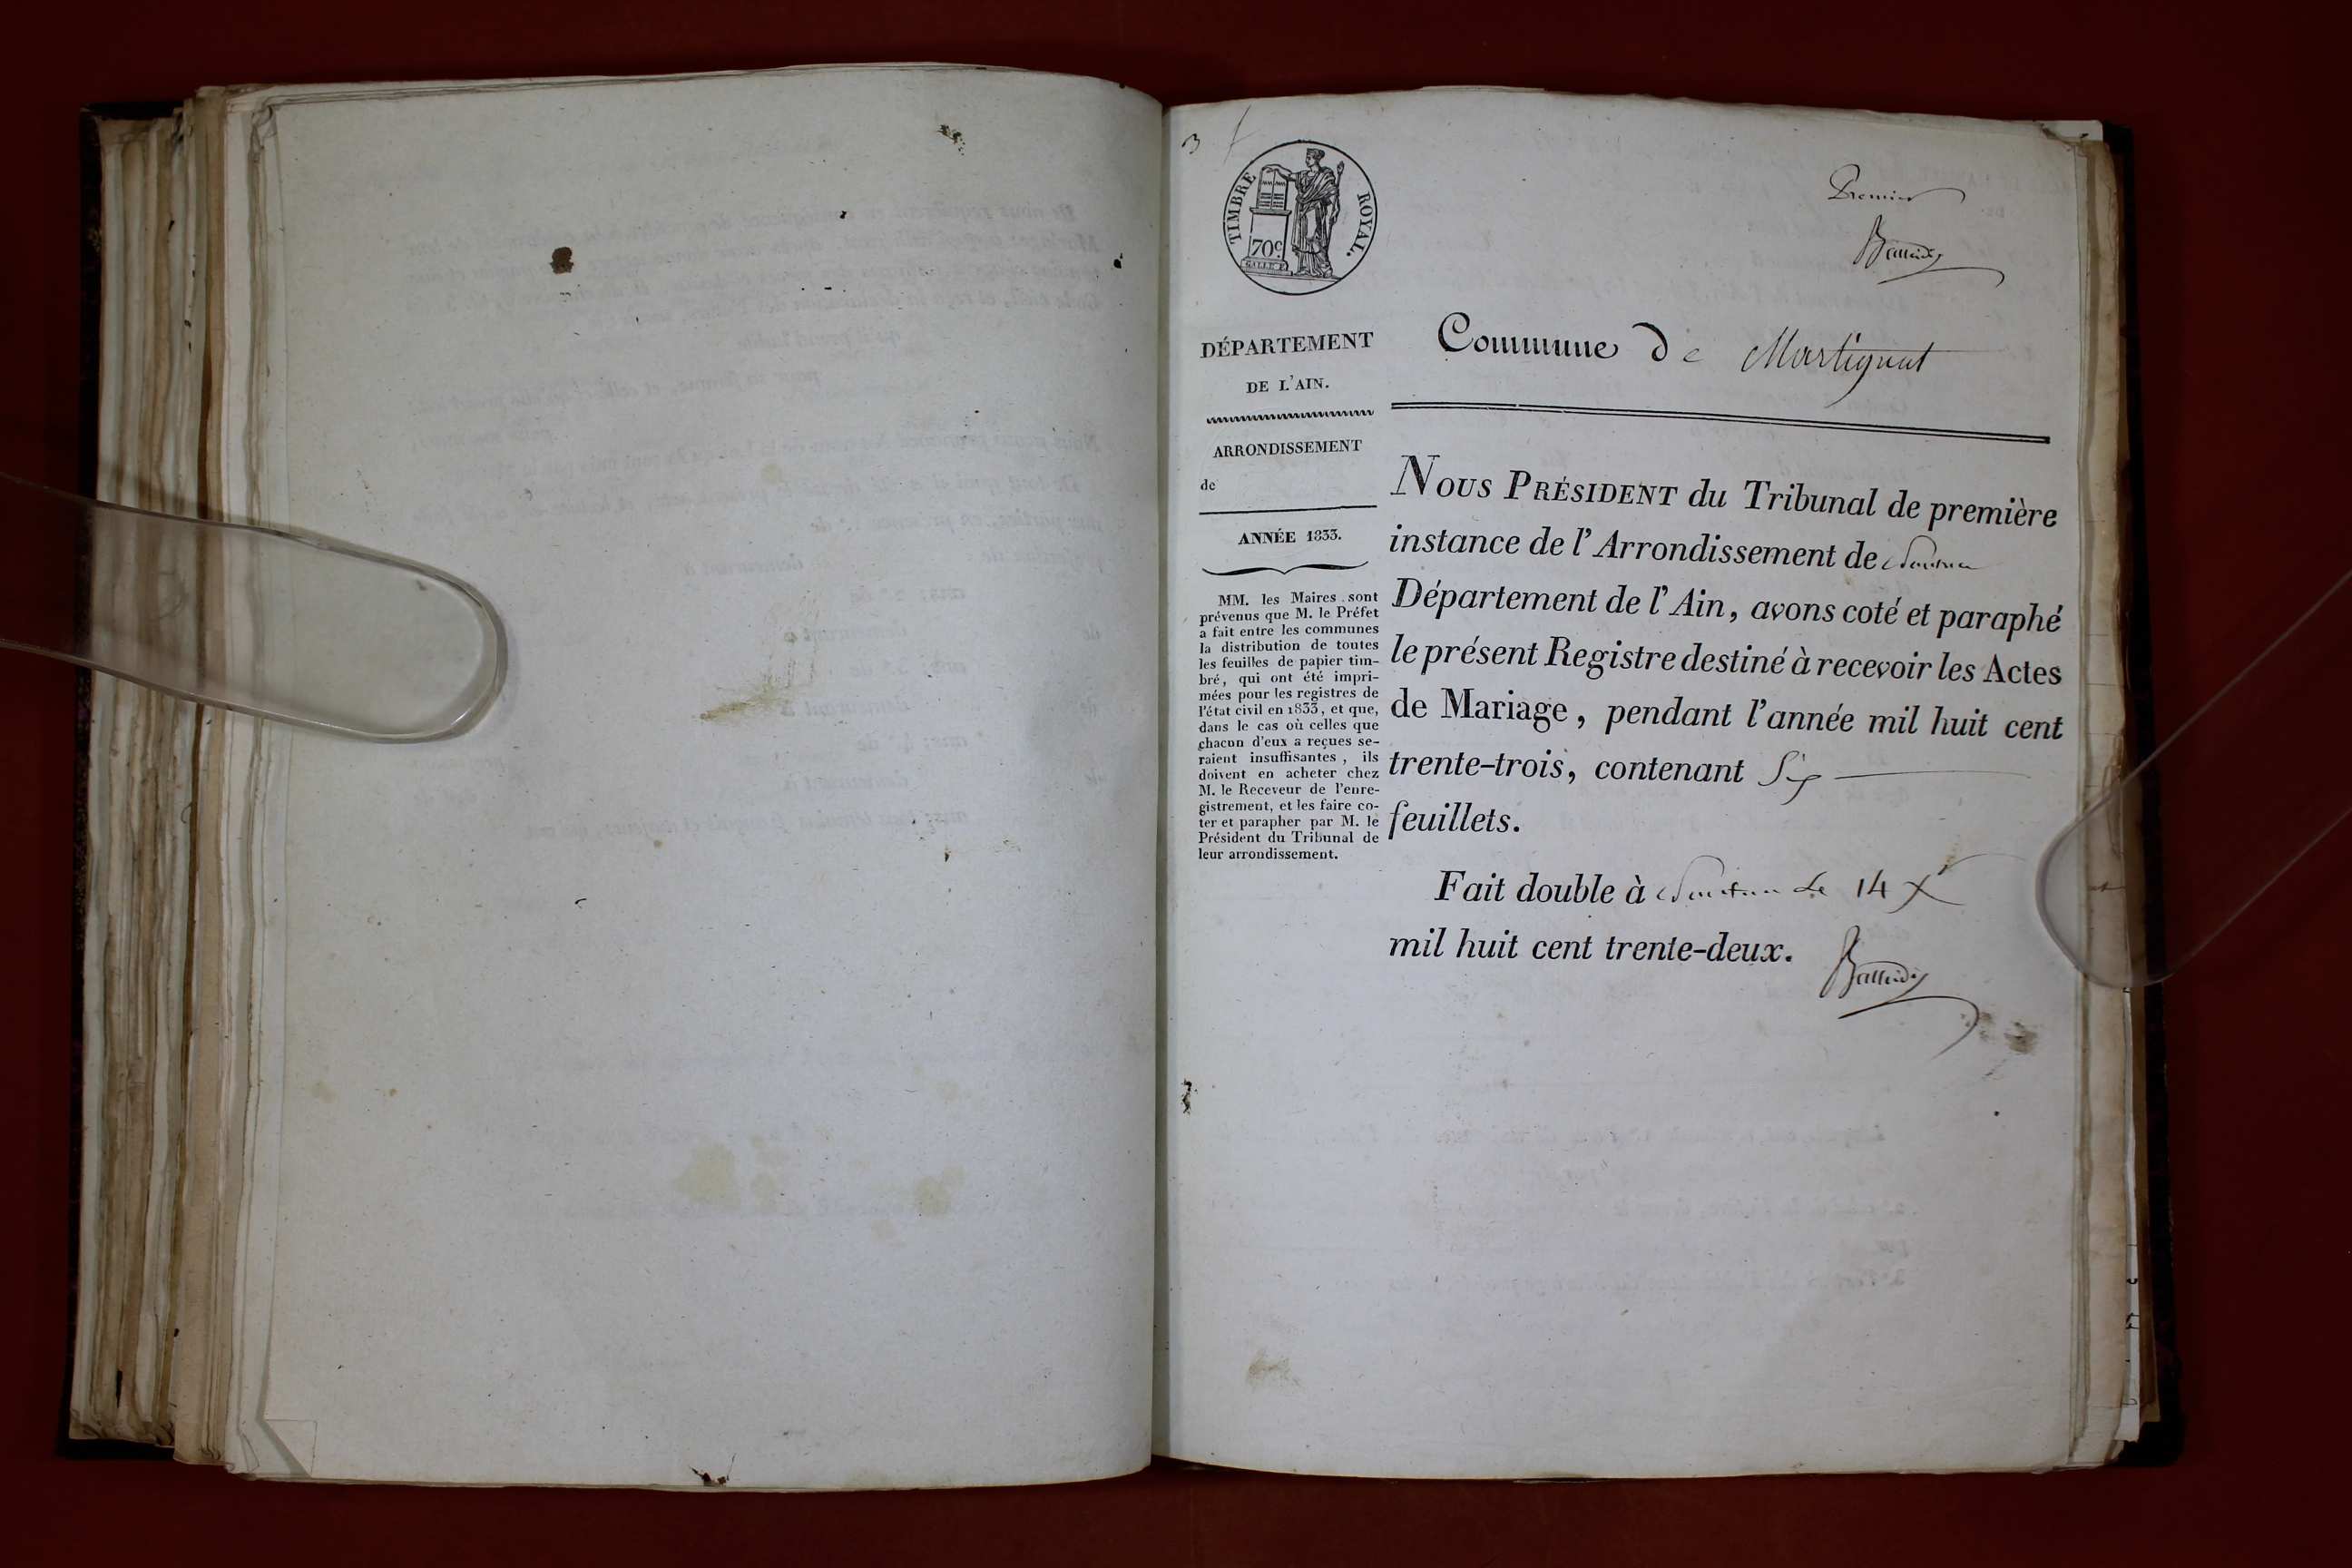 3
TIMBRE ROYAL.
70c.
GALLE F.
Premier
DÉPARTEMENT
DE L'AIN.
ARRONDISSEMENT
de
ANNÉE 1833.
MM. les Maires sont
prévenus que M. le Préfet
a fait entre les communes
la distribution de toutes
les feuilles de papier tim-
bré, qui ont été impri-
mées pour les registres de
l'état civil en 1833, et que,
dans le cas où celles que
chacun d'eux a reçues se-
raient insuffisantes, ils
doivent en acheter chez
M. le Receveur de l'enre-
gistrement, et les faire co-
ter et parapher par M. le
Président du Tribunal de
leur arrondissement.
Commune de Martignat
NOUS PRÉSIDENT du Tribunal de première
instance de l'Arrondissement de Nantua
Département de l'Ain, avons coté et paraphé
le présent Registre destiné à recevoir les Actes
de Mariage, pendant l'année mil huit cent
trente-trois, contenant Six
feuillets.
Fait double à Nantua le 14 X
mil huit cent trente-deux.